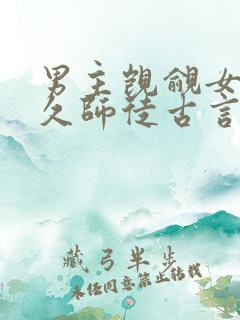 男主觊觎女
久师徒古言
藏弓半步
未经同意禁止转载